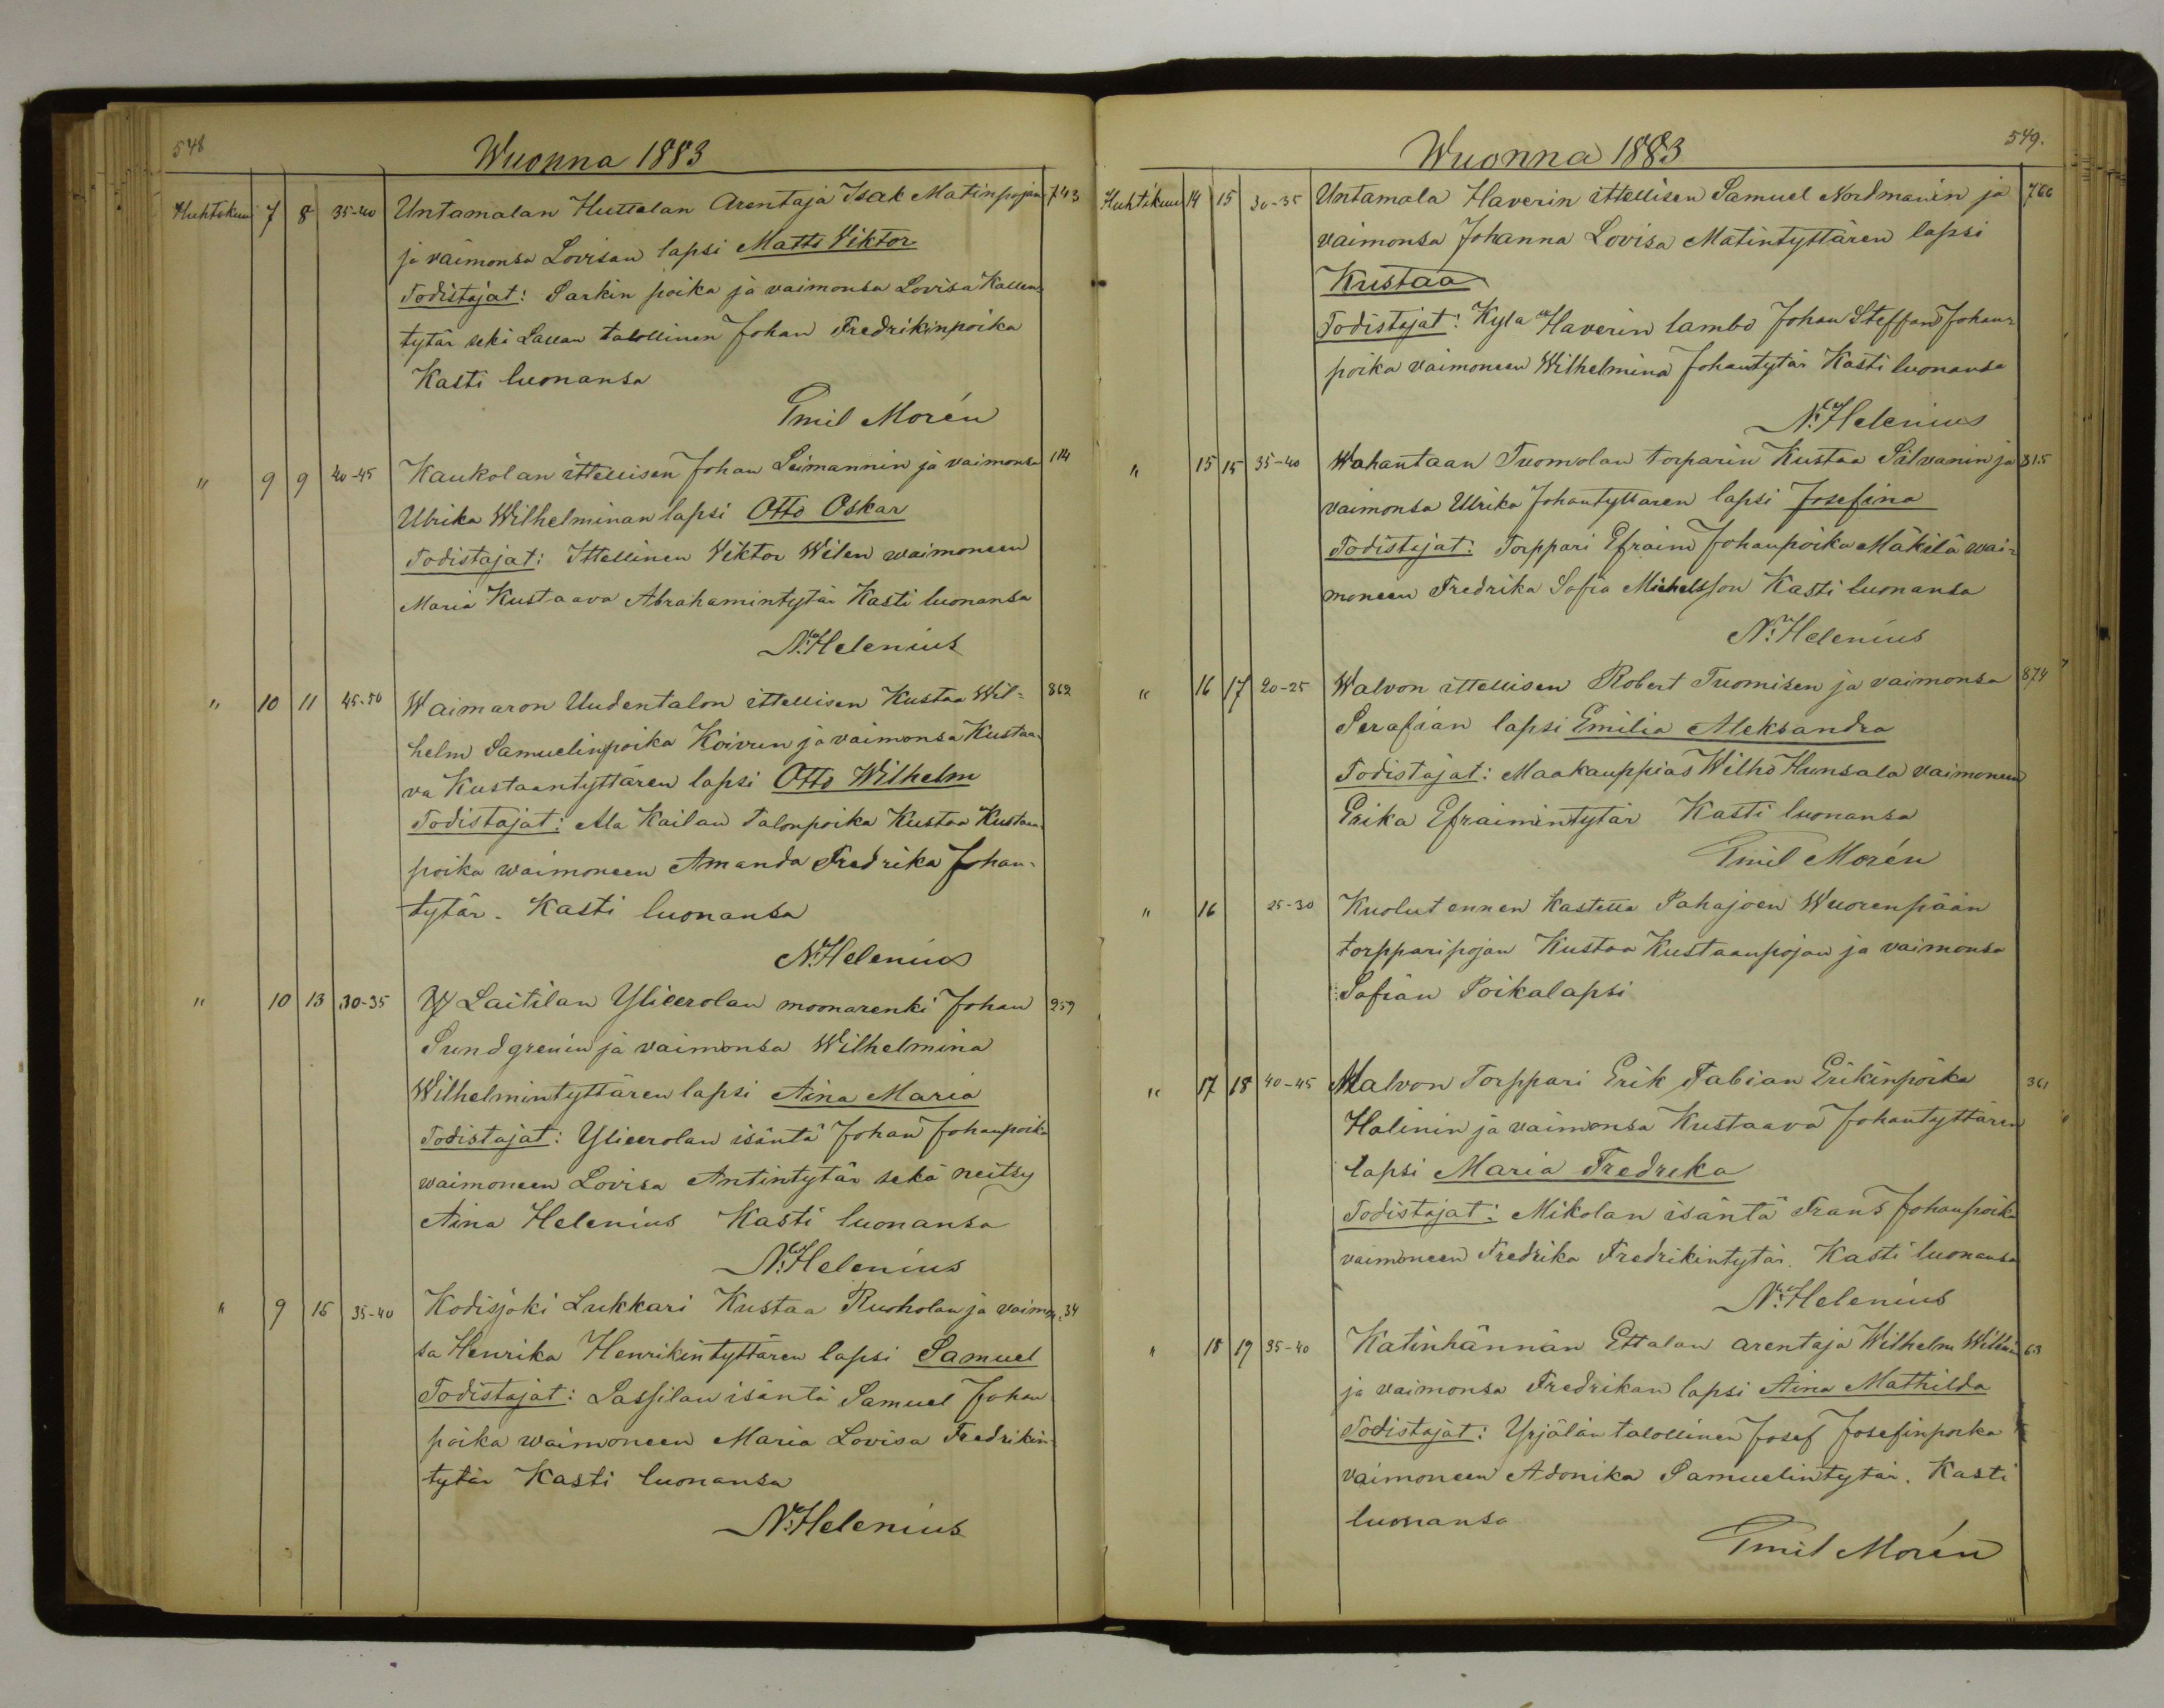 548
Wuonna 1883
Huhtikuu 7 8 35-40 Untamalan Huttalan Arentaja Isak Matinpojan 743
ja vaimonsa Lovisan lapsi Matts Viktor
Todistajat: Sarkin poika ja vaimonsa Lovisa Kallen-
tytär sekä talollinen Johan Fredrikinpoika
Kasti luonansa
Emil Morén
" 9 9 40-45 Kaukolan ittellisen Johan Leimannin ja vaimonsa 114
Ulrika Wilhelminan lapsi Otto Oskar
Todistajat: Ittellinen Viktor Wilen waimoneen
Maria Kustaava Abrahamintytär Kasti luonansa
N. Helenius
" 10 11 45-50 Waimaron Uudentalon ittellisen Kustaa Wil=
helm Samuelinpoika Koivun ja vaimonsa Kustaa- 862
va Kustaantyttären lapsi Otto Wilhelm
Todistajat: Ala Kailan Talonpoika Kustaa Kustaan-
poika waimoneen Amanda Fredrika Johan-
tytär. Kasti luonansa
N. Helenius
" 10 13 30-35 Laitilan Ylieerolan moonarenki Johan 259
Sundgrenin ja vaimonsa Wilhelmina
Wilhelmintyttären lapsi Aina Maria
Todistajat: Ylieerolan isäntä Johan Johanpoika
waimoneen Lovisa Antintytär sekä neitsy
Aina Helenius Kasti luonansa
N. Helenius
" 9 15 35-40 Kodisjoki Lukkari Kustaa Ruoholan ja vaimon- 34
sa Henrika Henrikintyttären lapsi Samuel
Todistajat: Lassilan isäntä Samuel Johan
poika waimoneen Maria Lovisa Fredrikin-
tytär Kasti luonansa
N. Helenius
549.
Wuonna 1883
Huhtikuu 14 15 30-35 Untamala Haverin ittellisen Samuel Nordmanin ja 766
vaimonsa Johanna Lovisa Matintyttären lapsi
Kustaa
Todistajat: Kyla Haverin lambo Johan Steffan Johan-
poika vaimoneen Wilhelmina Johantytär Kasti luonansa
N. Helenius
" 15 15 35-40 Wahantaan Tuomolan torparin Kustaa Silvanin ja 815
vaimonsa Ulrika Johantyttaren lapsi Josefina
Todistajat: Torppari Efraim Johanpoika Mäkilä wai=
moneen Fredrika Sofia Michelsson Kasti luonansa
N. Helenius
" 16 17 20-25 Walvon ittellisen Robert Tuomisen ja vaimonsa 874
Serafian lapsi Emilia Aleksandra
Todistajat: Maakauppias Wilho Hunsala vaimoneen
Erika Efraimintytär Kasti luonansa
Emil Morén
" 16 25-30 Kuolut ennen kastetta Pahajoen Wuorenpään
torpparipojan Kustaa Kustaanpojan ja vaimonsa
Sofian Poikalapsi
" 17 18 40-45 Malvon Torppari Erik Fabian Erikinpoika 361
Halinin ja vaimonsa Kustaava Johantyttären
lapsi Maria Fredrika
Todistajat: Mikolan isäntä Frans Johanpoika
vaimoneen Fredrika Fredrikintytär. Kasti luonansa
N. Helenius
" 18 19 35-40 Katinhännän Ettalan arentaja Wilhelm 63
ja vaimonsa Fredrikan lapsi Aina Mathilda
Todistajat: Yrjälän talollinen Josef Josefinpoika
vaimoneen Adonika Samuelintytär. Kasti
luonansa
Emil Morén